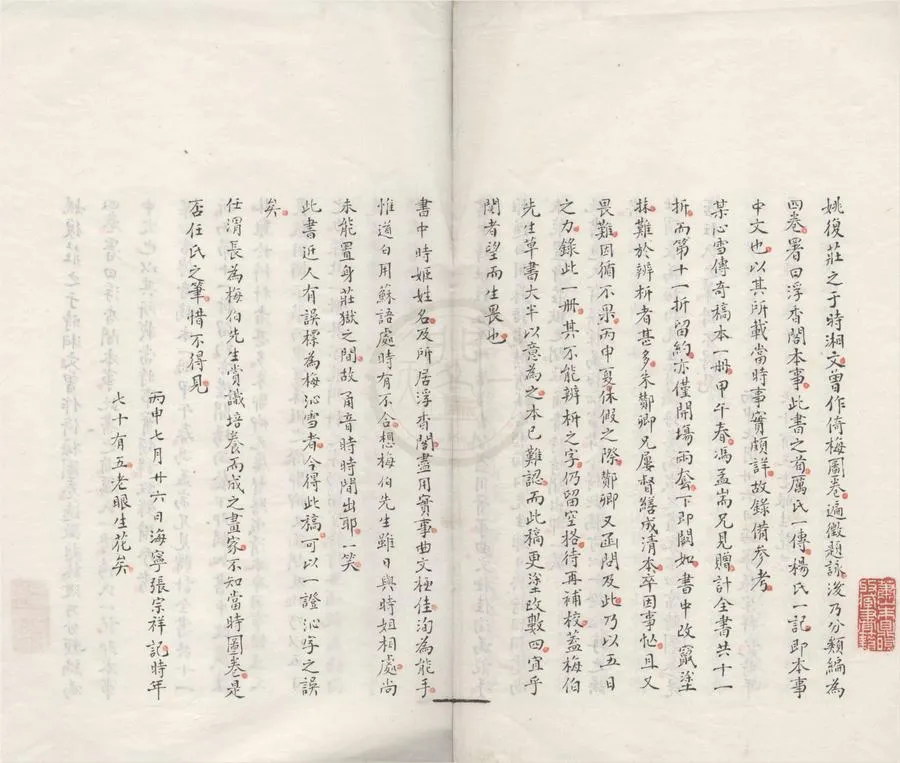 姚復莊之于時湘文曾作倚梅圖卷遍徵題詠後乃分類編為
四卷署曰浮香閣本事此書之首厲氏一傳楊氏一記即本事
中文也以其所載當時事實頗詳故錄備參考
某心雪傳奇稿本一冊甲午春馮孟耑兄見贈計全書共十一
折而第十一折留約亦僅開場兩套下即闕如書中改竄塗
抹難於辨析者甚多朱酇卿兄屢督繕成清本卒因事忙且又
畏難因循不果丙申夏休假之際酇卿又函問及此乃以五日
之力錄此一冊其不能辨析之字仍留空格待再補校蓋梅伯
先生草書大半以意為之本已難認而此稿更塗改數四宜乎
閱者望而生畏也
書中時姬姓名及所居浮香閣盡用實事曲文極佳洵為能手
惟道白用蘇語處時有不合想梅伯先生雖日與時姐相處尚
未能置身莊嶽之間故甬音時時間出耶一笑
此書近人有誤標為梅沁雪者今得此稿可以一證沁字之誤
矣
任渭長為梅伯先生賞識培養而成之畫家不知當時圖卷是
否任氏之筆惜不得見
丙申七月廿六日海寧張宗祥記時年
七十有五老眼生花矣